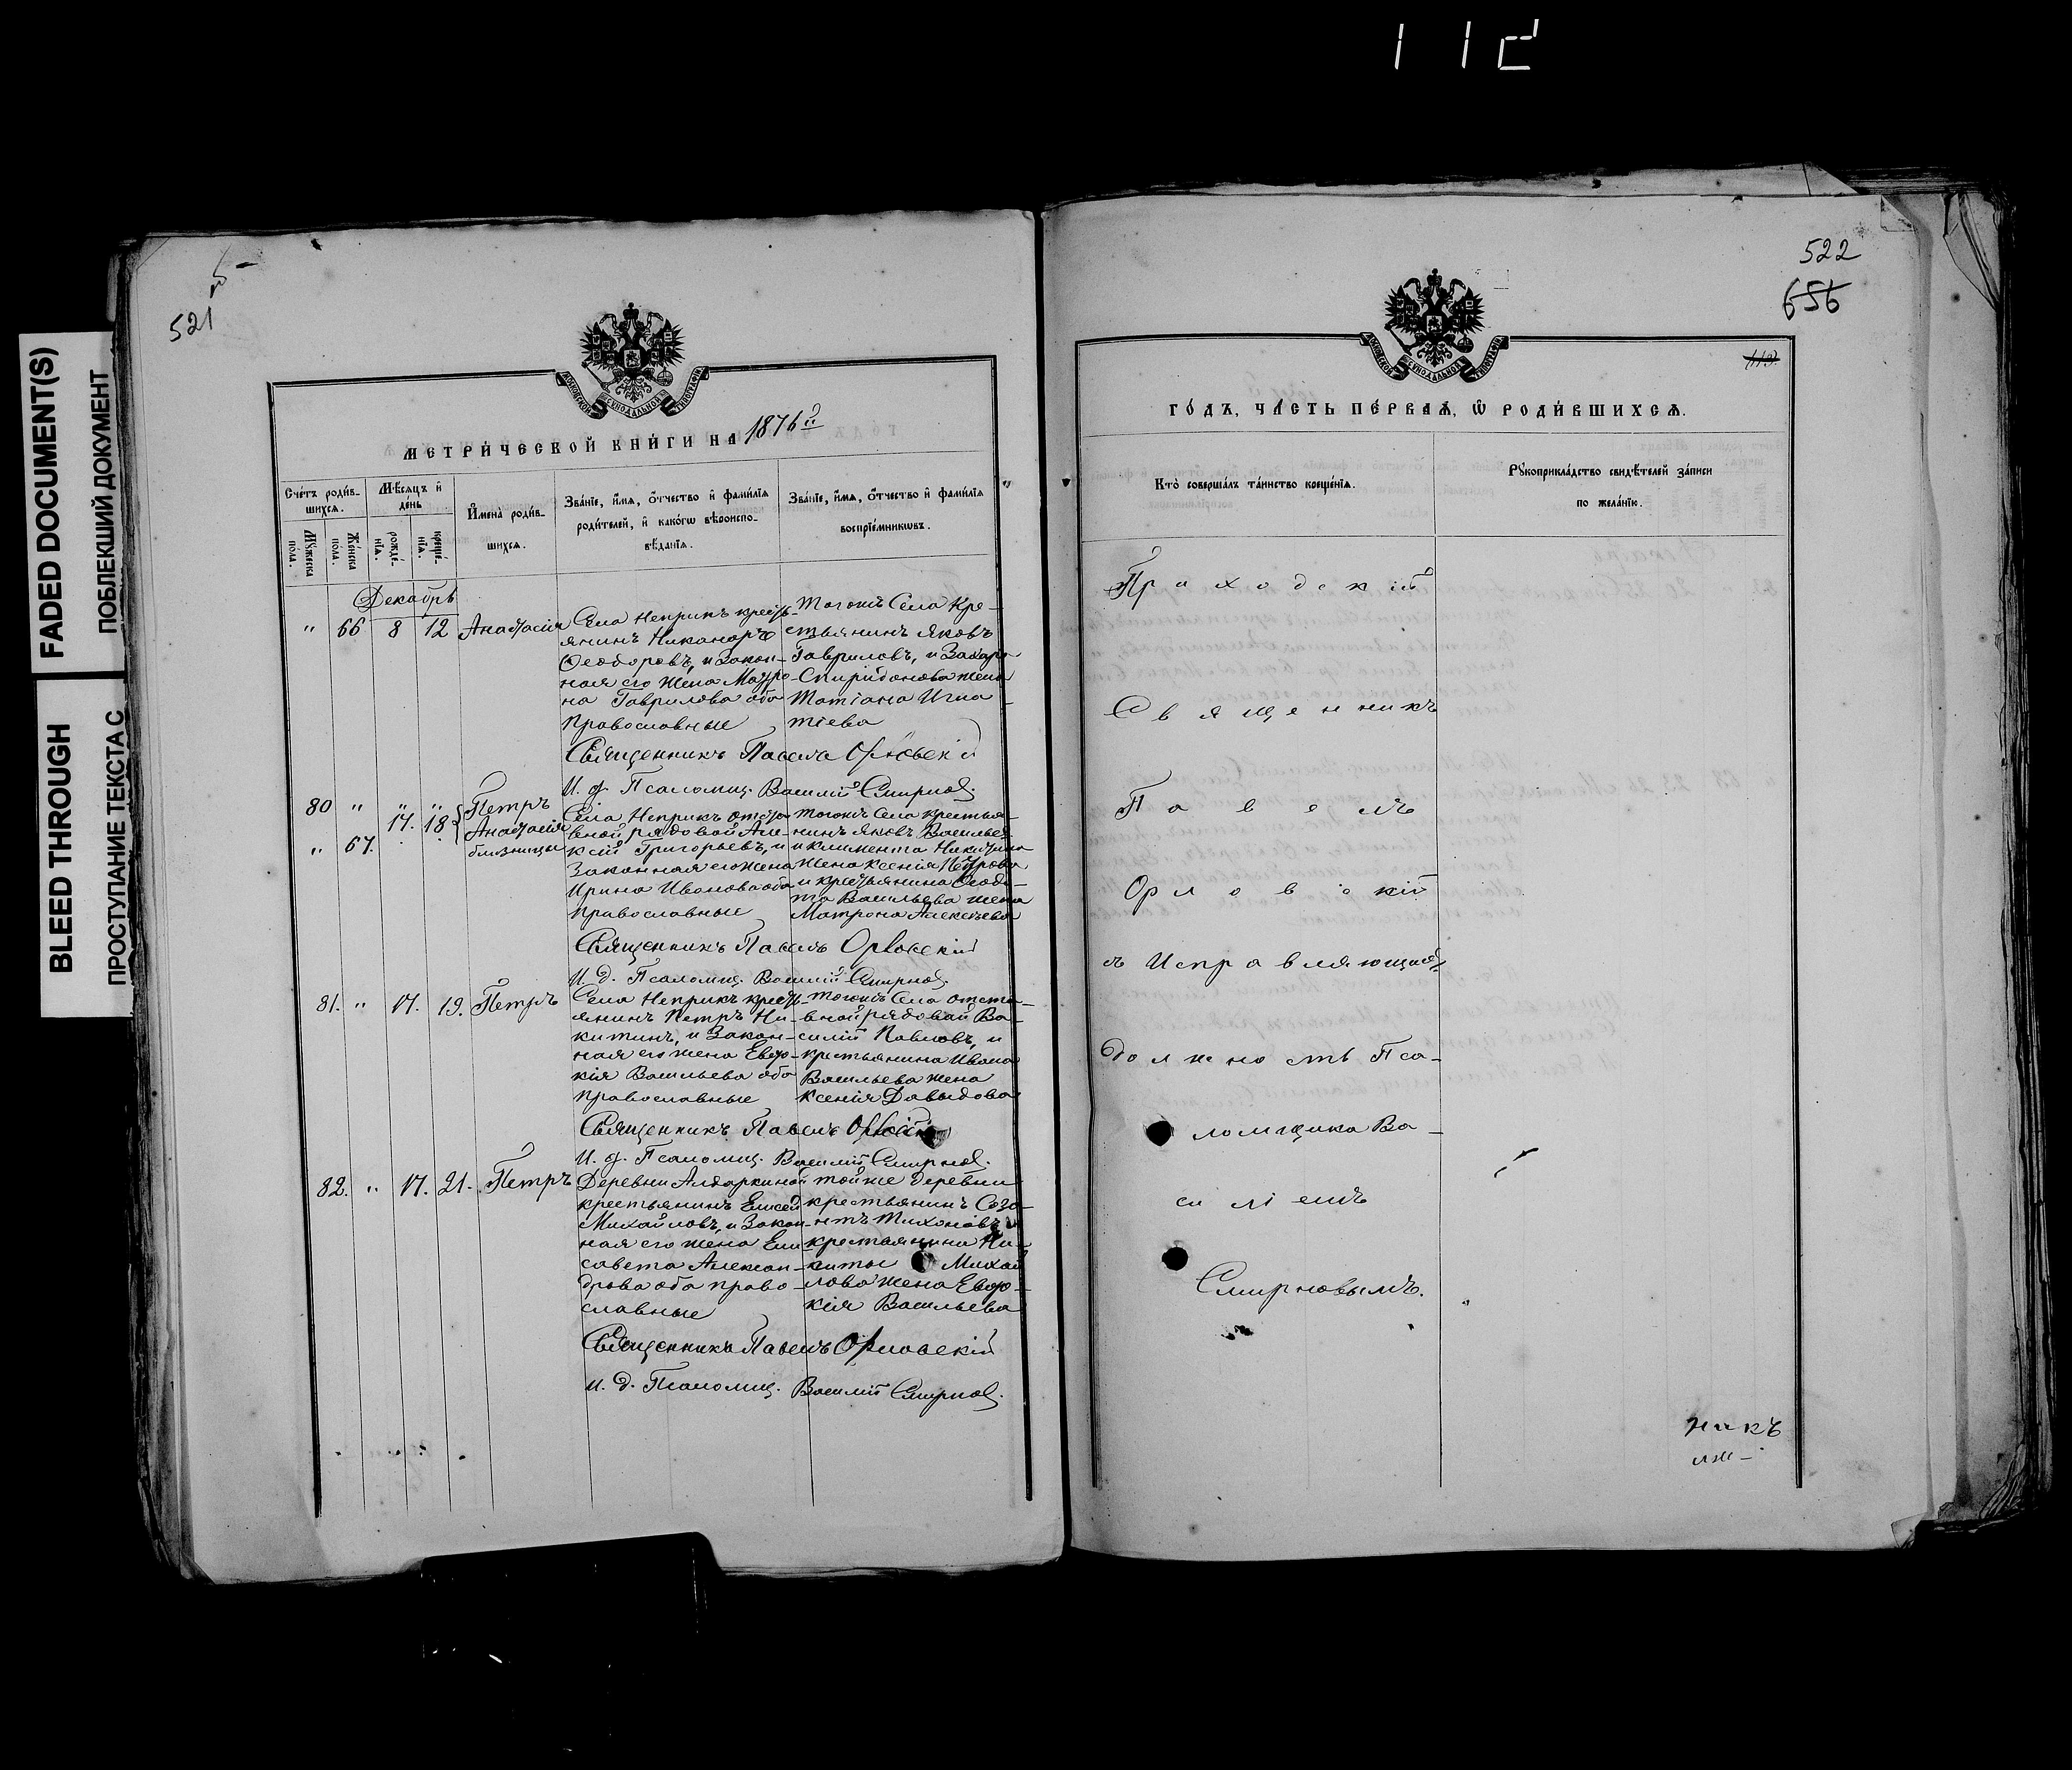 112
FADED DOCUMENT(S)
ПОБЛЕКШИЙ ДОКУМЕНТ
BLEED THROUGH
ПРОСТУПАНИЕ ТЕКСТА С
521
МОСКОВСКОЙ СУНОДАЛЬНОЙ ТИПОГРАФІИ
МЕТРИЧЕСКОЙ КНИГИ НА 1876й
Счетъ родив-
шихся.
Мѣсяцъ и
день
Имена родив-
шихся.
Званіе, имя, отчество и фамилія
родителей, и какогѡ вѣроиспо-
вѣданія.
Званіе, имя, отчество и фамилія
воспріемниковъ.
Мужеска пола.
Женска пола.
рожде-
нія.
креще-
нія.
Декабрь
" 66 8 12 Анастасія
Села Неприкъ кресть-
янинъ Никаноръ
Ѳеодоровъ, и закон-
ная его жена Матро-
на Гаврилова оба
православные
тогожъ Села Кре-
стьянинъ Яковъ
Гавриловъ, и Захара
Спиридонова жена
Татіана Игна-
тіева
Священникъ Павелъ Орловскій
И. д. Псаломщ. Василій Смирновъ.
80 " 17. 18. Петръ
" 67. Анастасія
близнецы
Села Неприкъ отста-
вной рядовой Але-
ксій Григорьевъ, и
Законная его жена
Ирина Иванова оба
православные
тогожъ Села крестья-
нинъ Яковъ Василье-
и Климента Никитина
жена Ксенія Петрова
и крестьянина Ѳеодо-
та Васильева жена
Матрона Алексѣева
Священникъ Павелъ Орловскій
И. д. Псаломщ. Василій Смирновъ.
81. " 17. 19. Петръ
Села Неприкъ кресть-
янинъ Петръ Ни-
китинъ, и Закон-
ная его жена Евдо-
кія Васильева оба
православные
тогожъ Села отста-
вной рядовой Ва-
силій Павловъ, и
крестьянина Ивана
Васильева жена
Ксенія Давыдова
Священникъ Павелъ Орловскій
И. д. Псаломщ. Василій Смирновъ.
82. " 17. 21. Петръ
Деревни Алдаркиной
крестьянинъ Елисей
Михайловъ, и Закон-
ная его жена Ели-
савета Алексан-
дрова оба право-
славные
тойже деревни
крестьянинъ Созо-
нтъ Тихоновъ и
крестьянина Ни-
киты Михай
лова жена Евдо-
кія Васильева
Священникъ Павелъ Орловскій
И. д. Псаломщ. Василій Смирновъ.
522
656
113.
МОСКОВСКОЙ СУНОДАЛЬНОЙ ТИПОГРАФІИ
ГОДЪ, ЧАСТЬ ПЕРВАЯ, Ѡ РОДИВШИХСЯ.
Кто совершалъ таинство крещенія.
Рукоприкладство свидѣтелей записи
по желанію.
Приходскій
Священникъ
Павелъ
Орловскій
съ Исправляющимъ
должность Пса-
ломщика Ва-
силіемъ
Смирновымъ.
никъ